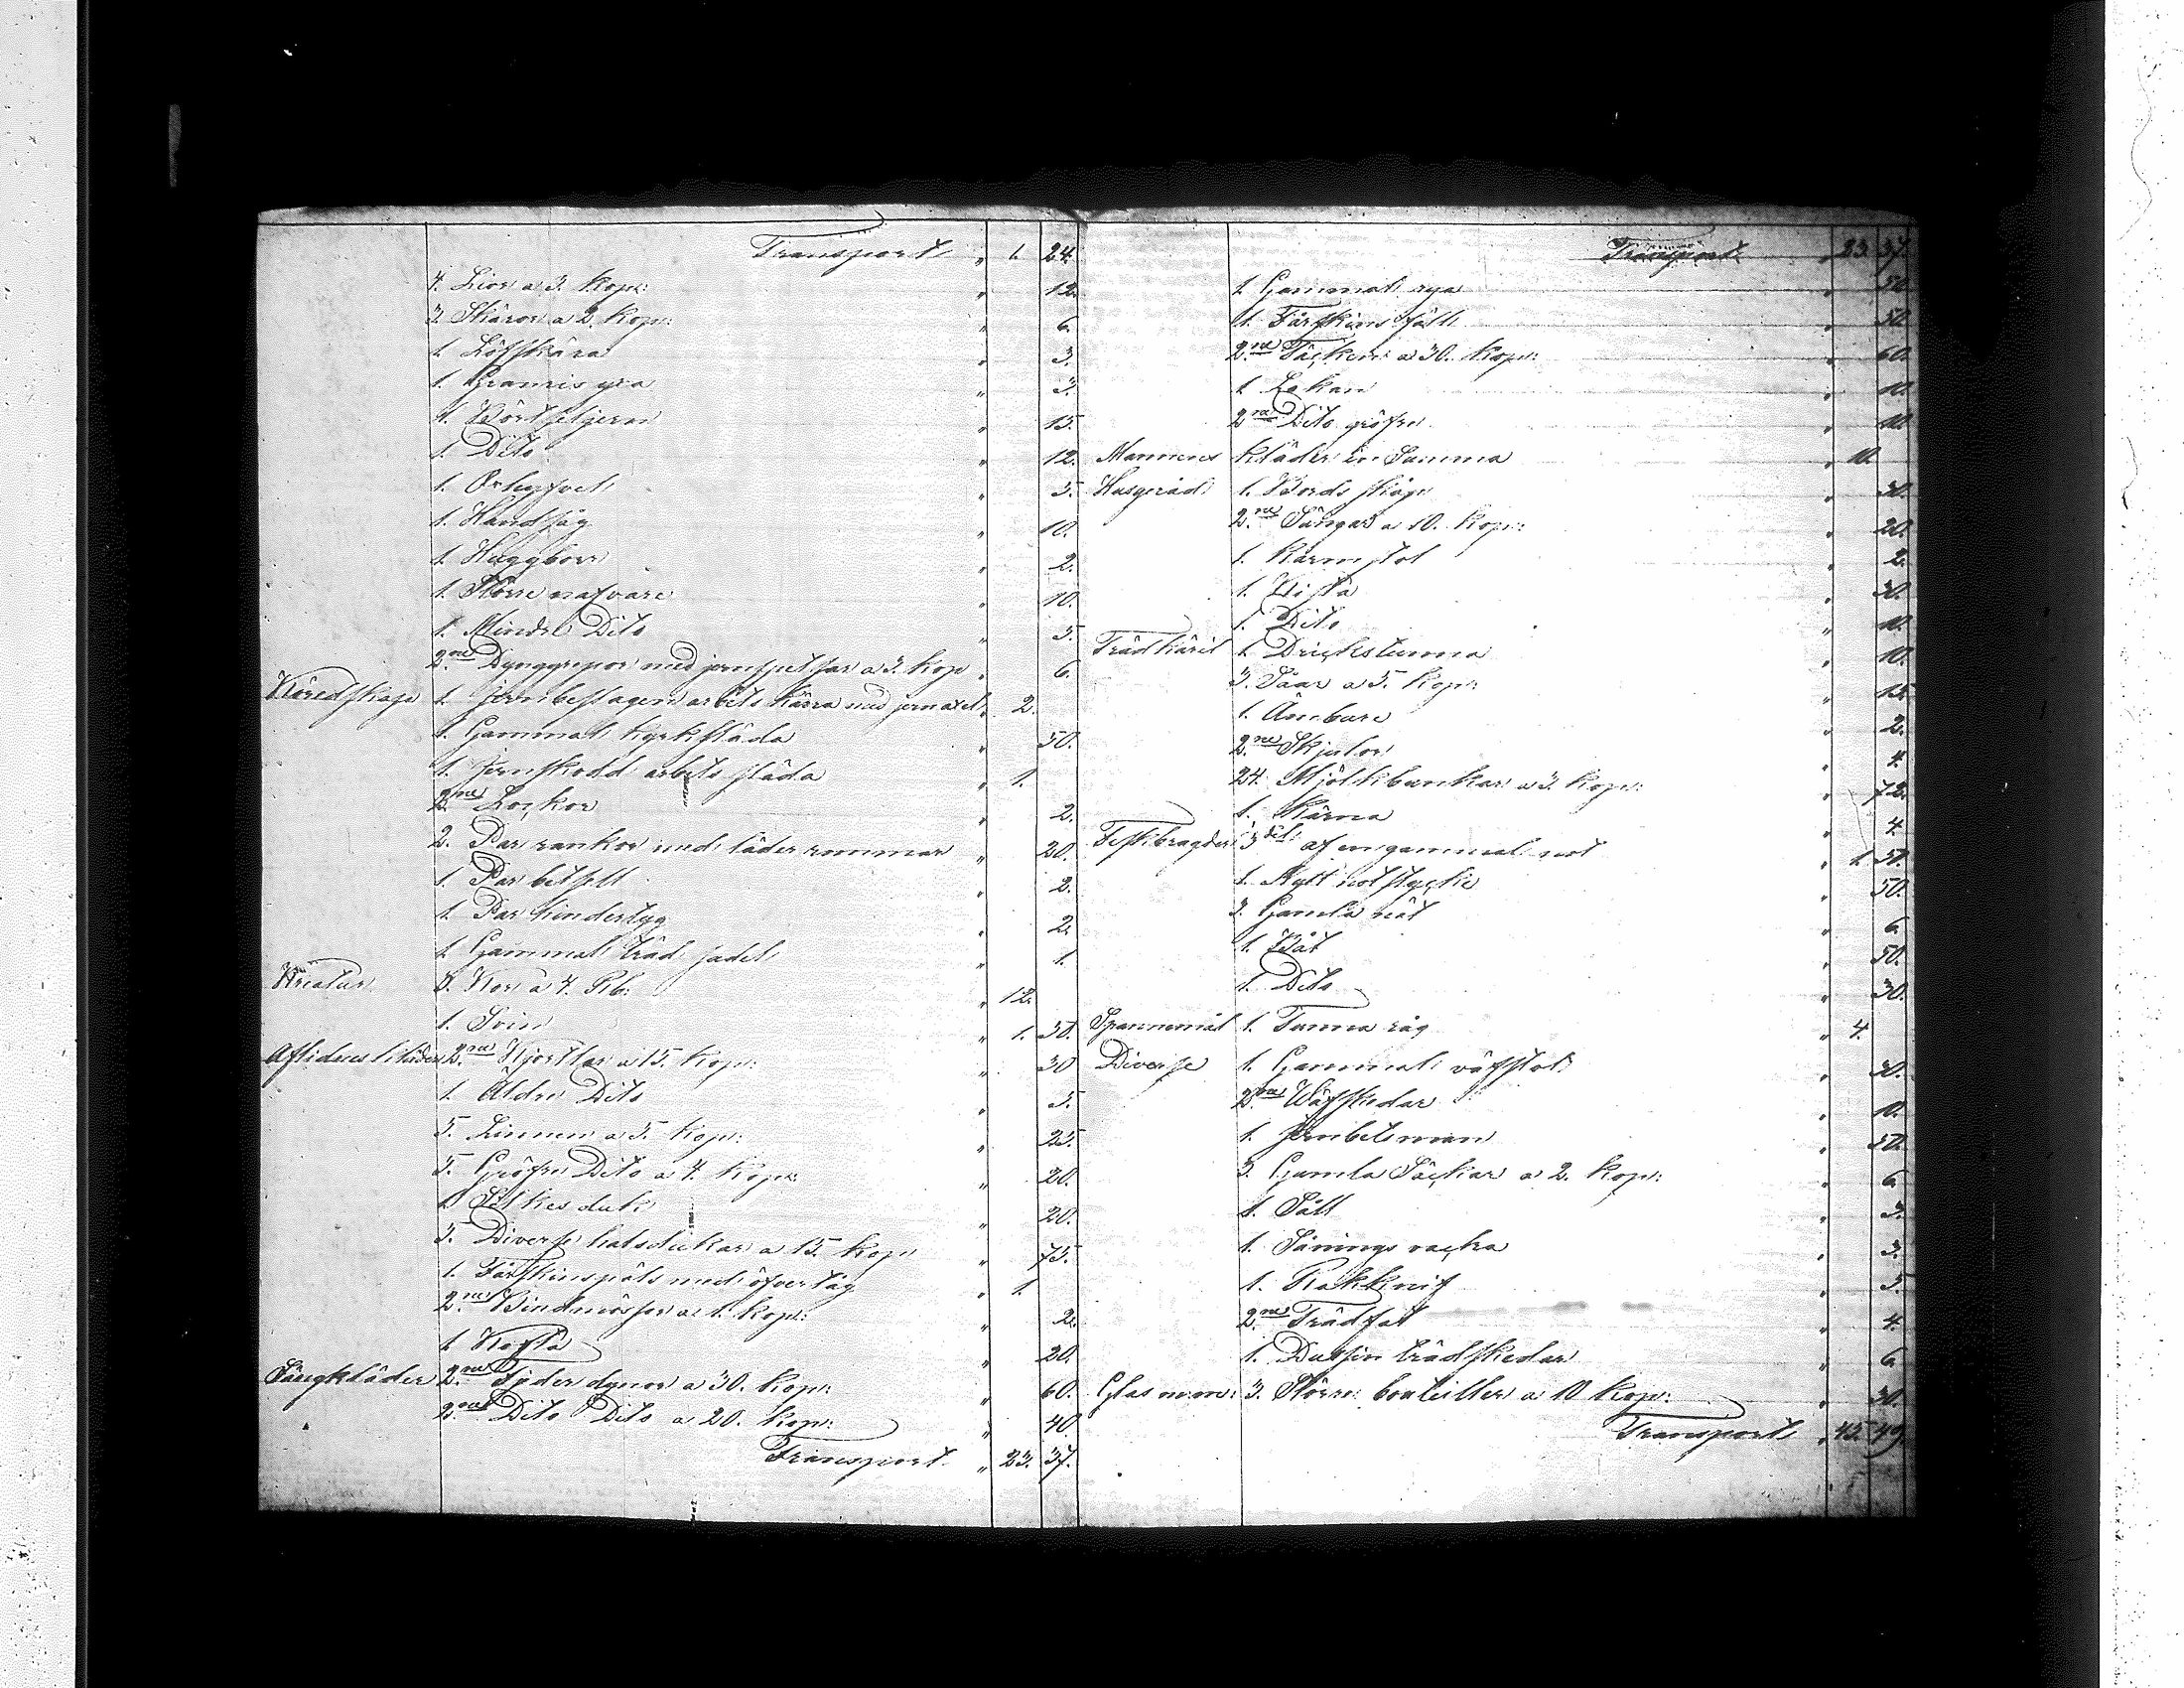 Transport " 1. 24.
4. Lior a 3. Kop: " 12.
3. Skäror a 2. Kop: " 6.
1. Löfskära " 3.
1. Granris yxa " 3.
1. " 15.
1. Dito " 12.
1. " 5.
1. Handsåg " 10.
1. Huggborr " 2.
1. Större nafvare " 10.
1. Mindre Dito " 5.
2ne Dynggrepor med jernspetsar a 3. Kop " 6.
Köredskap 1. Jernbeslagen arbets kärra med jernaxel " 2.
1. Gammal kyrksläda " 50.
1. Jernskodd arbets släda " 1.
2ne Lockor " 2.
2. Par rankor med läder remmar " 20.
1. Par betsell " 2.
1. Par " 2.
1. Gammal träd sadel " 1.
Kreatur 3. Kor a 4. Rb: " 12.
1. Svin " 1. 50.
Aflidnes kläder 2ne Kjortlar a 15. Kop: " 30
1. Äldre Dito " 5.
5. Linnen a 5. Kop: " 25.
5. Gröfre Dito a 4. Kop: " 20.
1. Silkes duk " 20.
5. Diverse halsdukar a 15. Kop " 75.
1. Fårskinspäls med öfvertåg " 1.
2ne Bindmössor a 1. Kop: " 2.
1. Kofta " 20.
Sängkläder 2ne Fjäder dynor a 30. Kop: " 60.
2ne Dito Dito a 20. Kop: " 40.
Transport " 23. 37.
Transport " 23. 37.
1. Gammal rya " 50
1. Fårskins fäll " 50
2ne Täcken a 30. Kop: " 60.
1. Lakan " 10.
2ne Dito gröfre " 10
Mannens kläder in Summa " 10.
Husgeråd 1. Bords skåp " 30.
2ne Sängar a 10. Kop: " 20.
1. Karmstol " 2.
1. Kista " 30.
1. Dito " 10.
Trädkäril 1. Drickstunna " 10.
3. Såar a 5. Kop: " 15.
1. Ämbare " 2.
2ne Skjulor " 4.
24. Mjölkbunkar a 3. Kop: " 72.
1. Kärna " 4.
Fiskbragder 3del af en gammal not " 1. 50.
1. Nytt notstycke " 50.
3. Gamla nät " 6.
1. Båt " 50.
1. Dito " 30.
Spannemål 1. Tunna råg " 4.
Diverse 1. Gammal väfstol " 30.
2ne Wäfskedar " 10.
1. Jernbetsman " 50.
3. Gamla Säckar a 2. Kop: " 6.
1. Såll " 3.
1. Sånings vacka " 3.
1. Rakknif " 5.
2ne Trädfat " 4.
1. Dussin trädskedar " 6.
Glas m.m: 3. Större bouteiller a 10 Kop: " 30.
Transport " 45. 49